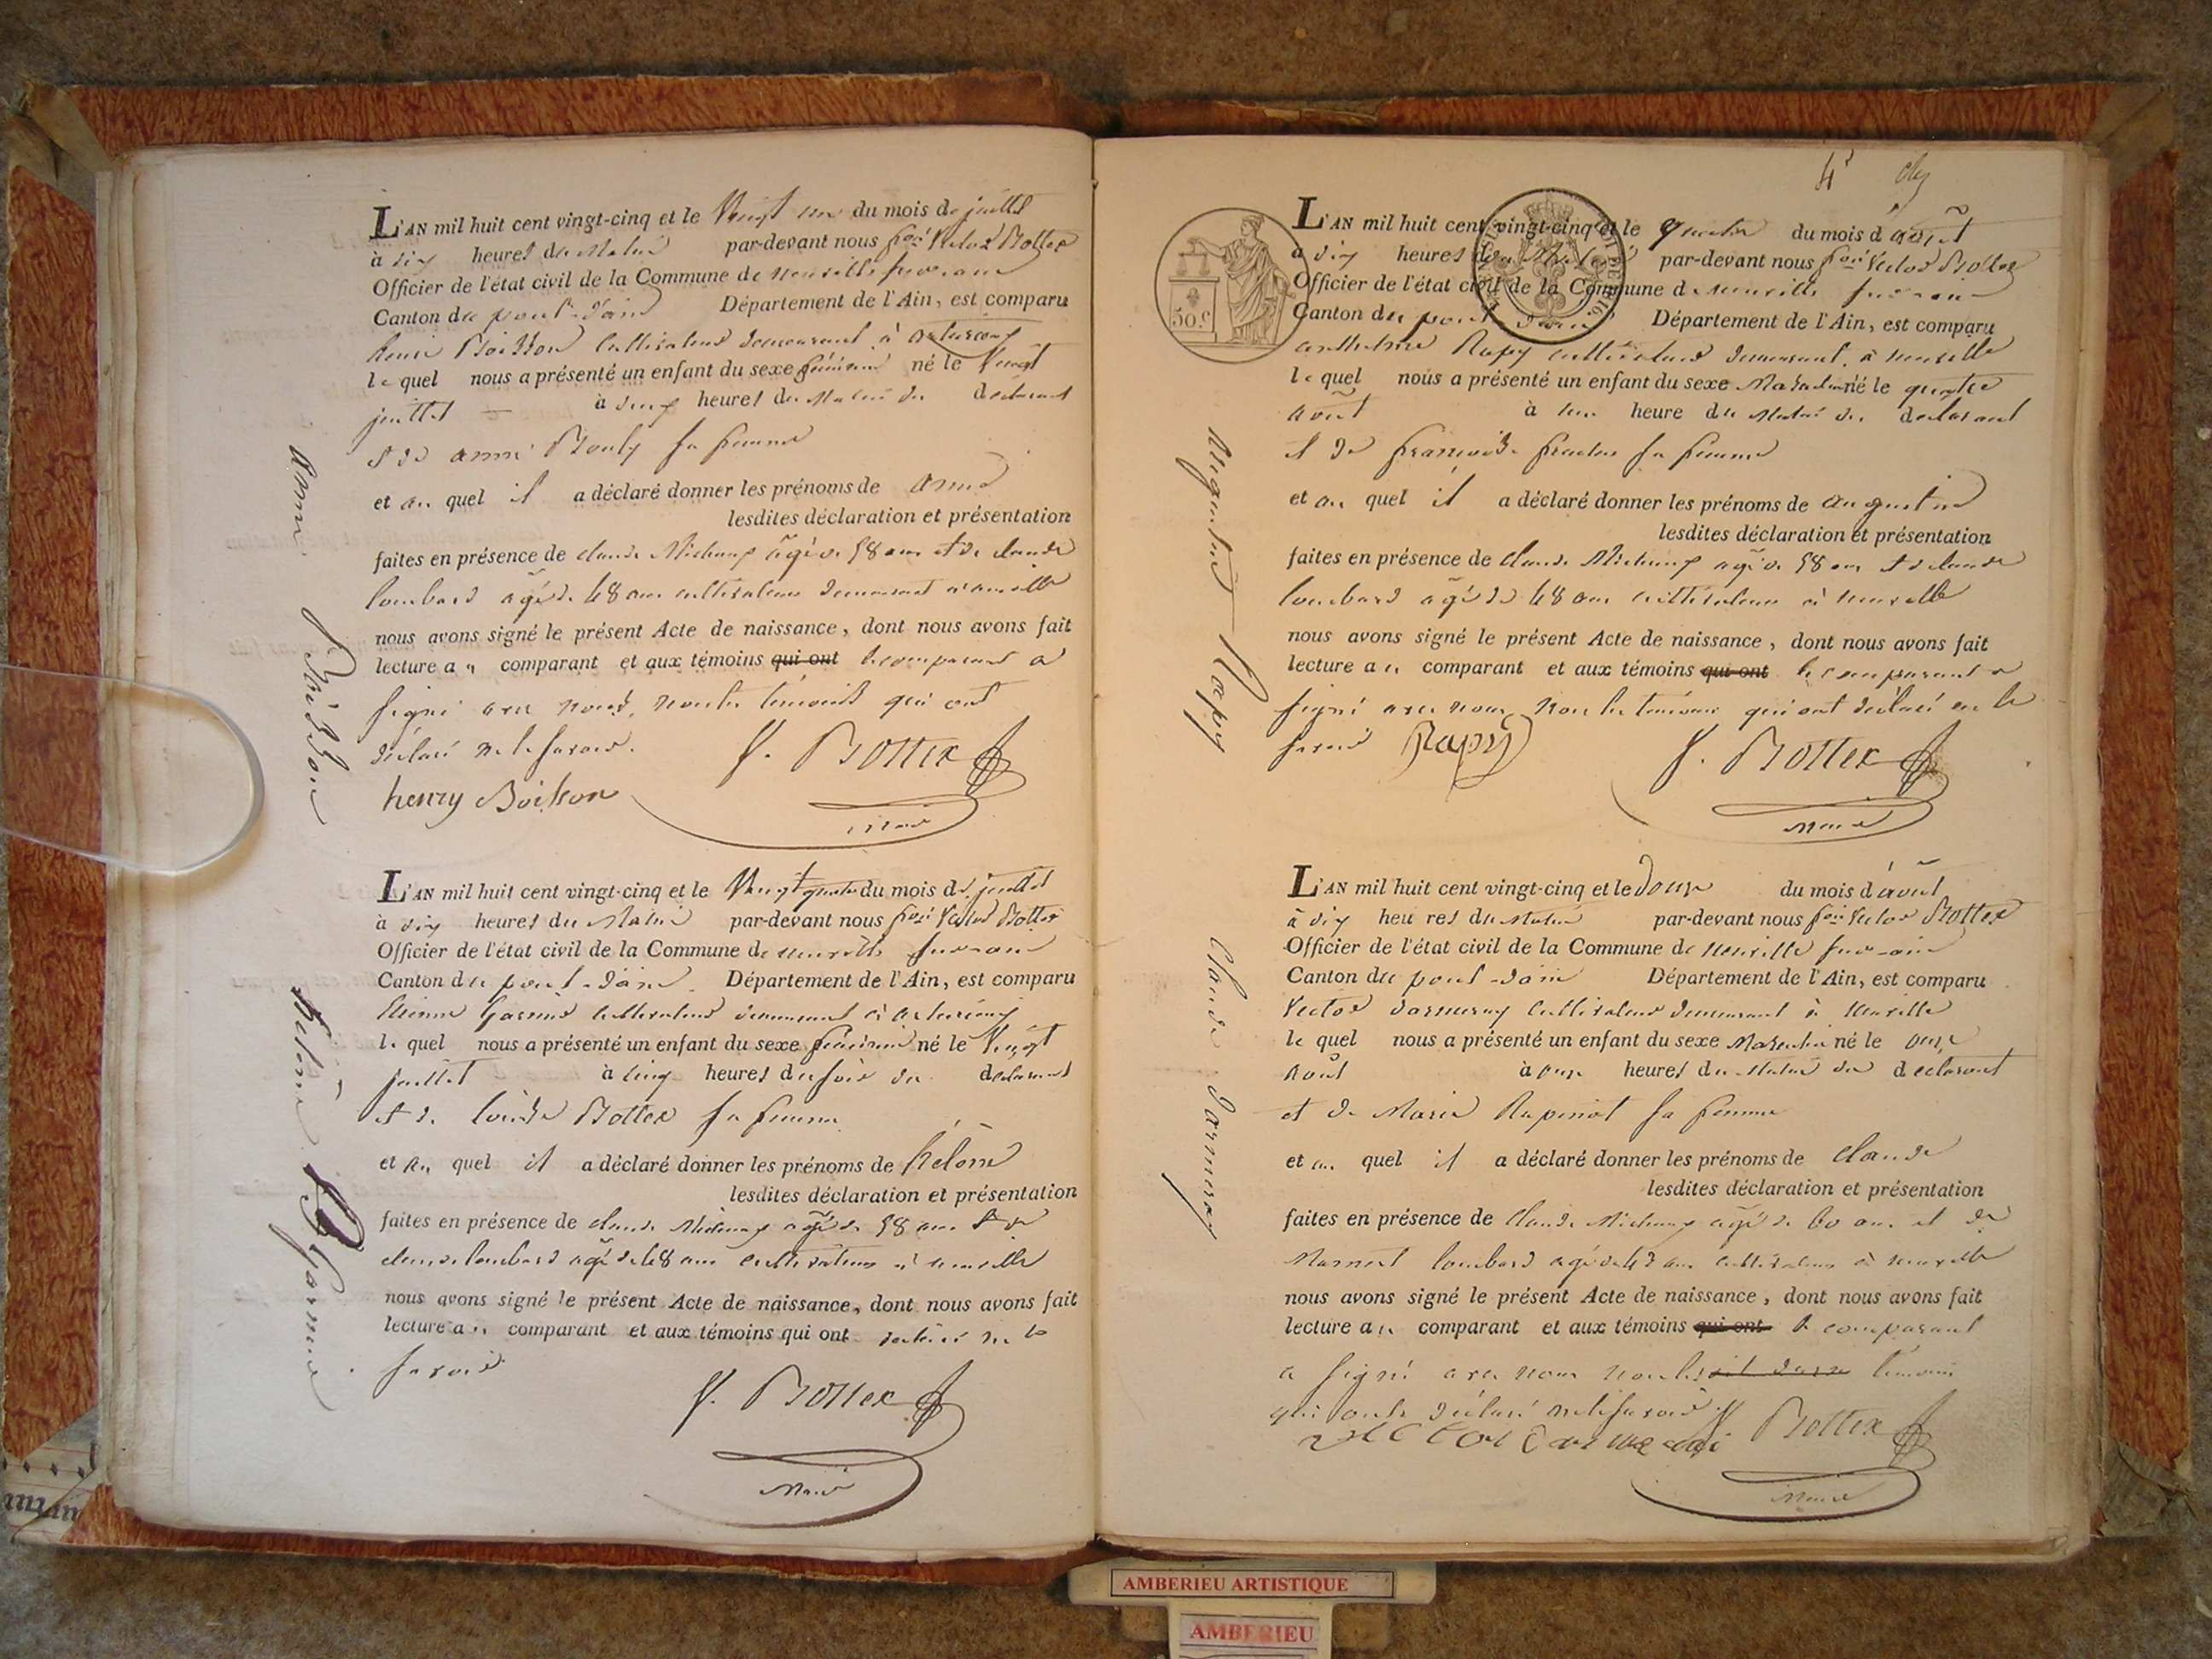 L'AN mil huit cent vingt-cinq et le Vingt un du mois de juillet
à dix heures du Matin par-devant nous fçois Victor Bottex
Officier de l'état civil de la Commune de neuville sur ain
Canton du pont-d'ain Département de l'Ain, est comparu
henri Boisson cultivateur demeurant à
le quel nous a présenté un enfant du sexe féminin né le Vingt
juillet à heures du Matin du déclarant
et de anne Bouly sa femme
et au quel il a déclaré donner les prénoms de anne
lesdites déclaration et présentation
faites en présence de claude Michaux agé de 58 ans et de claude
lombard agé de 48 ans cultivateurs demeurant à neuville
nous avons signé le présent Acte de naissance, dont nous avons fait
lecture au comparant et aux témoins qui ont le comparant a
signé avec nous, non les témoins qui ont
déclaré ne le savoir.
henry Boisson
V. Bottex
Maire
anne Boisson
L'AN mil huit cent vingt-cinq et le Vingt quatre du mois de juillet
à dix heures du Matin par-devant nous fçois Victor Bottex
Officier de l'état civil de la Commune de neuville sur ain
Canton du pont-d'ain. Département de l'Ain, est comparu
Etienne Garnier cultivateur demeurant à
le quel nous a présenté un enfant du sexe féminin né le Vingt
juillet à cinq heures du soir du déclarant
et de Bottex sa femme
et au quel il a déclaré donner les prénoms de hélène
lesdites déclaration et présentation
faites en présence de claude Michaux agé de 58 ans et de
claude lombard agé de 48 ans cultivateurs à neuville
nous avons signé le présent Acte de naissance, dont nous avons fait
lecture au comparant et aux témoins qui ont déclaré ne le
savoir
V. Bottex
Maire
helène Garnier
4e
L'AN mil huit cent vingt-cinq et le quatre du mois d'août
à dix heures du Matin par-devant nous fçois Victor Bottex
Officier de l'état civil de la Commune de neuville sur ain
Canton du pont d'ain Département de l'Ain, est comparu
50 c
anthelme Rapy cultivateur demeurant à neuville
le quel nous a présenté un enfant du sexe Masculin né le quatre
août à une heure du Matin du déclarant
et de françoise sa femme
et au quel il a déclaré donner les prénoms de augustin
lesdites déclaration et présentation
faites en présence de claude Michaux agé de 58 ans et de claude
lombard agé de 48 ans cultivateurs à neuville
nous avons signé le présent Acte de naissance, dont nous avons fait
lecture au comparant et aux témoins qui ont le comparant a
signé avec nous, non les témoins qui ont déclaré ne le
savoir Rapy
V. Bottex
Maire
Augustin Rapy
L'AN mil huit cent vingt-cinq et le douze du mois d'août
à dix heures du Matin par-devant nous fçois Victor Bottex
Officier de l'état civil de la Commune de neuville sur ain
Canton du pont-d'ain Département de l'Ain, est comparu
Victor darmeray cultivateur demeurant à neuville
le quel nous a présenté un enfant du sexe Masculin né le onze
août à onze heures du Matin du déclarant
et de Marie Rapinot sa femme
et au quel il a déclaré donner les prénoms de claude
lesdites déclaration et présentation
faites en présence de claude Michaux agé de 60 ans et de
lombard agé de 43 ans cultivateurs à neuville
nous avons signé le présent Acte de naissance, dont nous avons fait
lecture au comparant et aux témoins qui ont le comparant
a signé avec nous non les témoins
qui ont déclaré ne le savoir
V. Bottex
Maire
Claude darmeray
AMBERIEU ARTISTIQUE
AMBERIEU